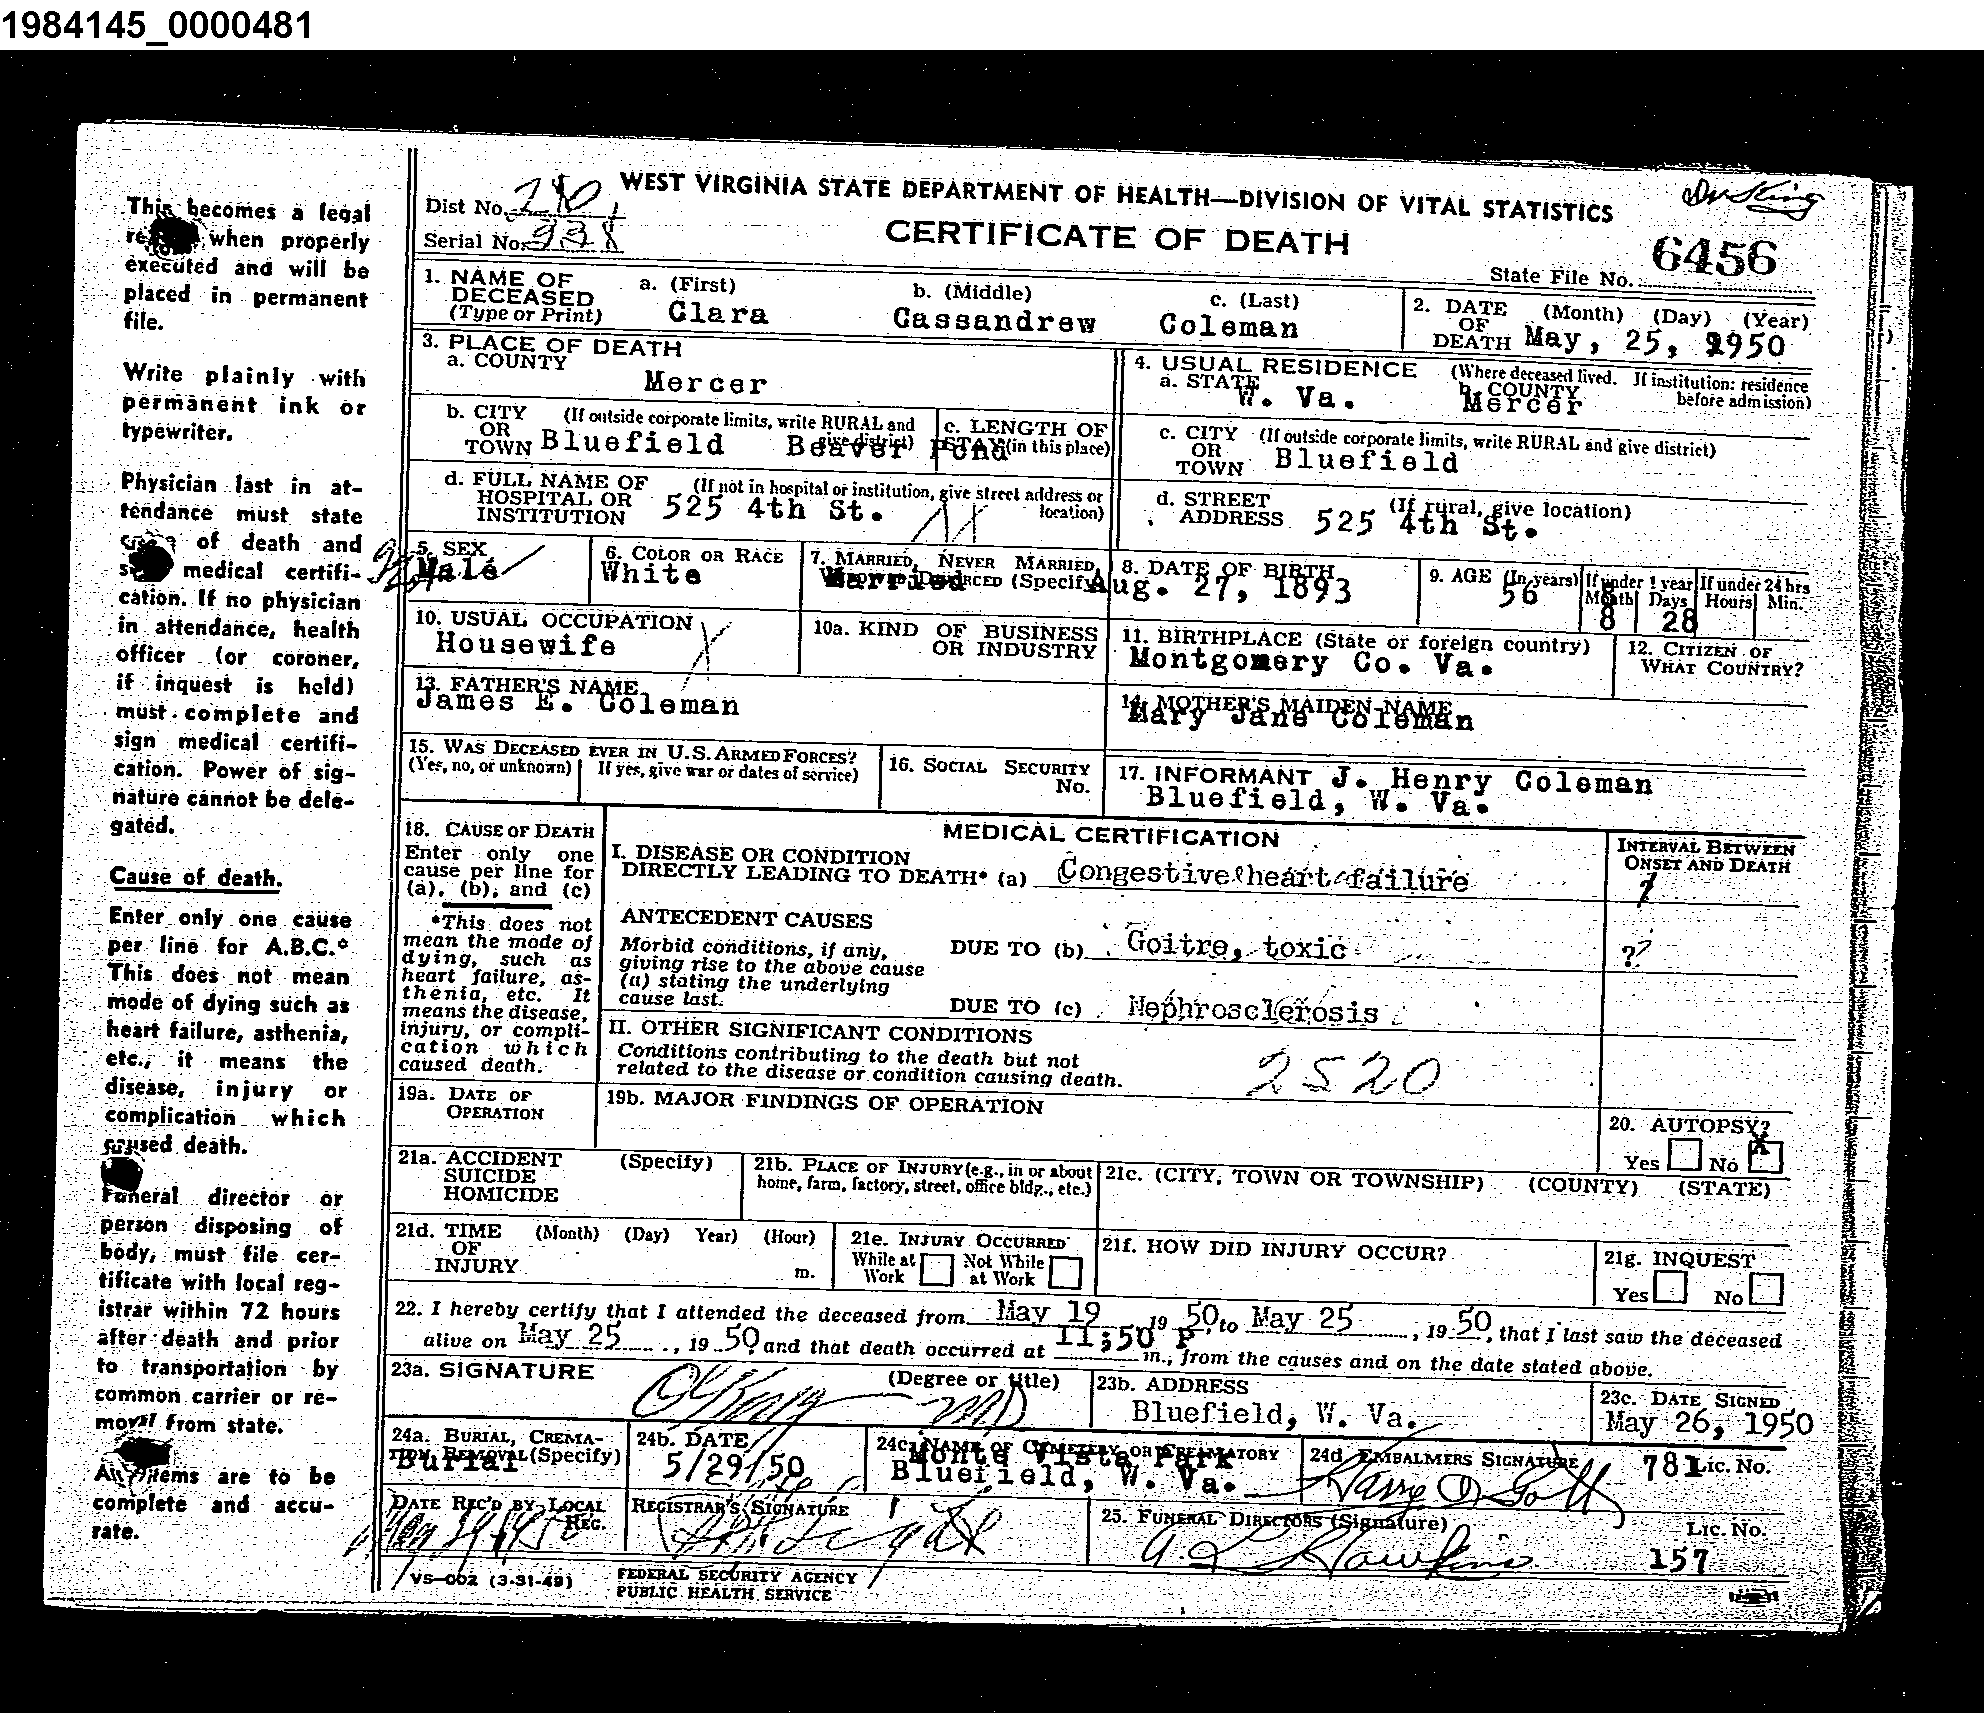 1984145_0000481
This becomes a legal
when properly
executed and will be
placed in permanent
file.
Write plainly with
permanent ink or
typewriter.
Physician last in at-
tendance must state
of death and
medical certifi-
cation. If no physician
in attendance, health
officer (or coroner,
if inquest is held)
must complete and
sign medical certifi-
cation. Power of sig-
nature cannot be dele-
gated.
Cause of death.
Enter only one cause
per line for A.B.C.*
This does not mean
mode of dying such as
heart failure, asthenia,
etc., it means the
disease, injury or
complication which
caused death.
Funeral director or
person disposing of
body, must file cer-
tificate with local reg-
istrar within 72 hours
after death and prior
to transportation by
common carrier or re-
moval from state.
All items are to be
complete and accu-
rate.
WEST VIRGINIA STATE DEPARTMENT OF HEALTH—DIVISION OF VITAL STATISTICS
Dr King
Dist No.
Serial No. 938
CERTIFICATE OF DEATH
State File No. 6456
1. NAME OF DECEASED (Type or Print) a. (First) Clara b. (Middle) Cassandrew c. (Last) Coleman
2. DATE OF DEATH (Month) (Day) (Year) May, 25, 1950
3. PLACE OF DEATH
a. COUNTY Mercer
4. USUAL RESIDENCE (Where deceased lived. If institution: residence before admission)
a. STATE W. Va. b. COUNTY Mercer
b. CITY OR TOWN (If outside corporate limits, write RURAL and give district) Bluefield Beaver Pond
c. LENGTH OF STAY (in this place)
c. CITY OR TOWN (If outside corporate limits, write RURAL and give district) Bluefield
d. FULL NAME OF HOSPITAL OR INSTITUTION (If not in hospital or institution, give street address or location) 525 4th St.
d. STREET ADDRESS (If rural, give location) 525 4th St.
5. SEX Male
6. COLOR OR RACE White
7. MARRIED, NEVER MARRIED, WIDOWED, DIVORCED (Specify) Married
8. DATE OF BIRTH Aug. 27, 1893
9. AGE (In years) 56 If under 1 year Month 8 Days 28 If under 24 hrs Hours Min.
10. USUAL OCCUPATION Housewife X
10a. KIND OF BUSINESS OR INDUSTRY
11. BIRTHPLACE (State or foreign country) Montgomery Co. Va.
12. CITIZEN OF WHAT COUNTRY?
13. FATHER'S NAME James E. Coleman
14. MOTHER'S MAIDEN NAME Mary Jane Coleman
15. WAS DECEASED EVER IN U.S. ARMED FORCES?
(Yes, no, or unknown) If yes, give war or dates of service)
16. SOCIAL SECURITY No.
17. INFORMANT J. Henry Coleman
Bluefield, W. Va.
18. CAUSE OF DEATH
Enter only one
cause per line for
(a), (b), and (c)
*This does not
mean the mode of
dying, such as
heart failure, as-
thenia, etc. It
means the disease,
injury, or compli-
cation which
caused death.
MEDICAL CERTIFICATION
INTERVAL BETWEEN ONSET AND DEATH
I. DISEASE OR CONDITION
DIRECTLY LEADING TO DEATH* (a) Congestive heart failure ?
ANTECEDENT CAUSES
Morbid conditions, if any,
giving rise to the above cause
(a) stating the underlying
cause last.
DUE TO (b) Goitre, toxic ??
DUE TO (c) Nephrosclerosis
II. OTHER SIGNIFICANT CONDITIONS
Conditions contributing to the death but not
related to the disease or condition causing death.
2520
19a. DATE OF OPERATION
19b. MAJOR FINDINGS OF OPERATION
20. AUTOPSY?
Yes No X
21a. ACCIDENT SUICIDE HOMICIDE (Specify)
21b. PLACE OF INJURY (e.g., in or about home, farm, factory, street, office bldg., etc.)
21c. (CITY, TOWN OR TOWNSHIP) (COUNTY) (STATE)
21d. TIME OF INJURY (Month) (Day) Year) (Hour) m.
21e. INJURY OCCURRED While at Work Not While at Work
21f. HOW DID INJURY OCCUR?
21g. INQUEST
Yes No
22. I hereby certify that I attended the deceased from May 19, 19 50, to May 25, 19 50, that I last saw the deceased
alive on May 25, 19 50 and that death occurred at 11;50 P m., from the causes and on the date stated above.
23a. SIGNATURE (Degree or title) MD
23b. ADDRESS Bluefield, W. Va.
23c. DATE SIGNED May 26, 1950
24a. BURIAL, CREMA-
TION, REMOVAL (Specify) Burial
24b. DATE 5/29/50
24c. NAME OF CEMETERY OR CREMATORY Monte Vista Park
Bluefield, W. Va.
24d. EMBALMERS SIGNATURE 781 Lic. No.
DATE REC'D BY LOCAL REG.
REGISTRAR'S SIGNATURE
25. FUNERAL DIRECTORS (Signature) A L Hawkins Lic. No. 157
VS-002 (3-31-49)
FEDERAL SECURITY AGENCY
PUBLIC HEALTH SERVICE